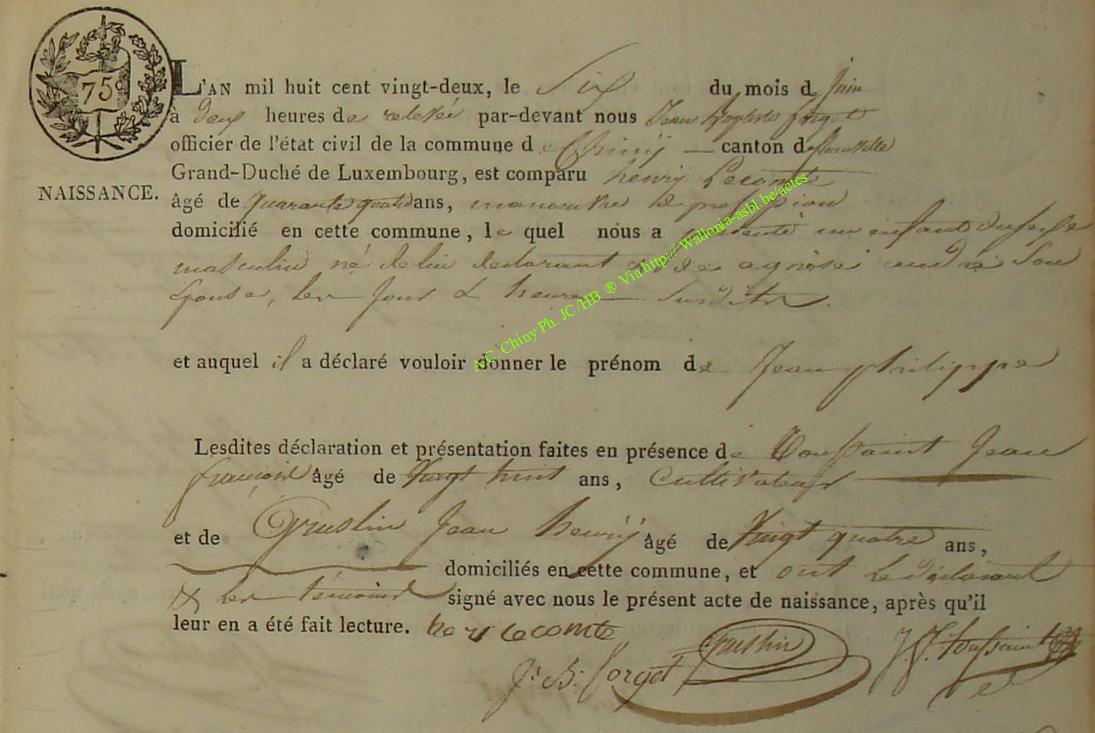 75c
L'AN mil huit cent vingt-deux, le Six du mois de juin
à deux heures de relevée par-devant nous Jean Baptiste forget
officier de l'état civil de la commune de Chinÿ canton de florenville
Grand-Duché de Luxembourg, est comparu henry Lecomte
NAISSANCE.
âgé de quarante quatre ans, manoeuvre de profession
domicilié en cette commune, le quel nous a présenté un enfant du sexe
masculin né de lui declarant et de agnès andré Son
Epouse, les jour & heure Susdits.
et auquel il a déclaré vouloir donner le prénom de Jean philippe
Lesdites déclaration et présentation faites en présence de Toussaint Jean
françois âgé de Vingt huit ans, Cultivateur
et de Gruslin Jean henrÿ âgé de Vingt quatre ans,
domiciliés en cette commune, et ont le déclarant
& les témoins signé avec nous le présent acte de naissance, après qu'il
leur en a été fait lecture. henry lecomte Gruslin J. f. toussaint
J. B. forget
A.C. Chiny Ph. JC /HB ® Via http:// Wallonia-asbl.be.actes